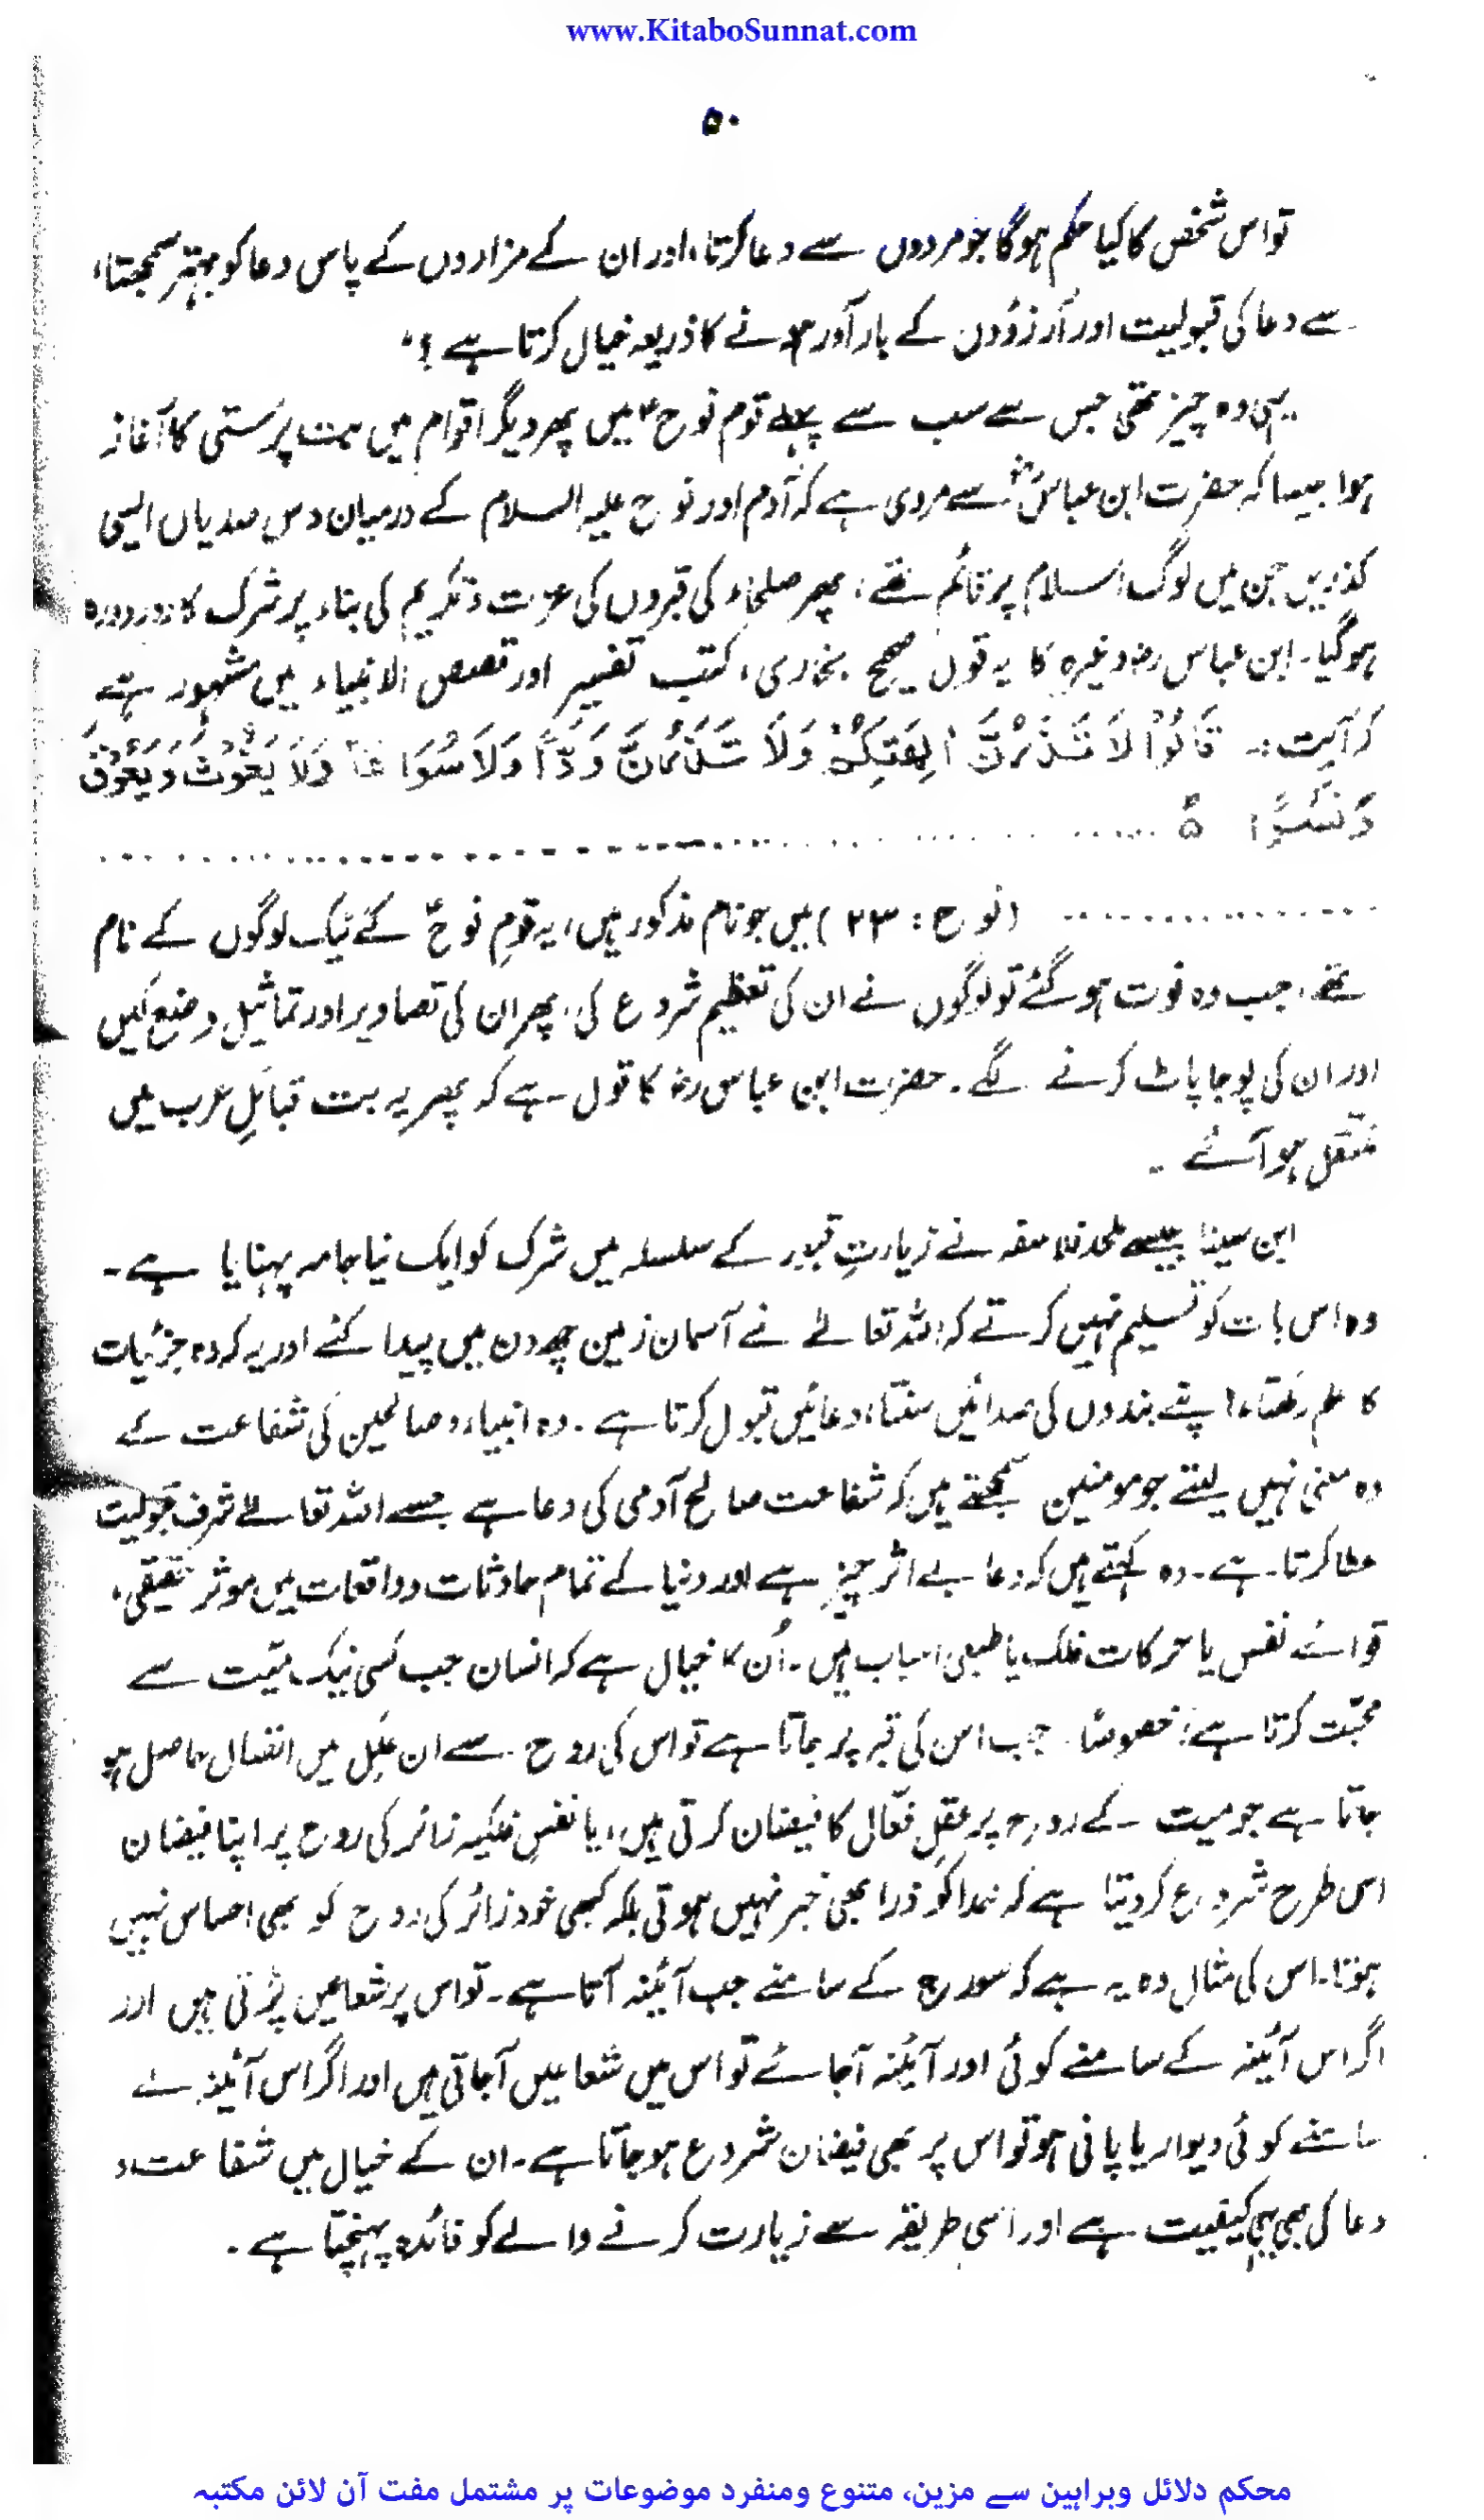 www.KitaboSunnat.com
۵۰
تو اس شخص کا کیا حکم ہوگا جو مردوں سے دعا کرتا، اور ان کے مزاروں کے پاس دعا کو بہتر سمجھتا،
سے دعا کی قبولیت اور آرزوؤں کے بار آور ہونے کا ذریعہ خیال کرتا ہے؟"
یہی وہ چیز تھی جس سے سب سے پہلے قوم نوحؑ میں پھر دیگر اقوام میں بت پرستی کا آغاز
ہوا جیسا کہ حضرت ابن عباسؓ سے مروی ہے کہ آدم اور نوح علیہ السلام کے درمیان دس صدیاں ایسی
گذریں جن میں لوگ اسلام پر قائم تھے، پھر صلحاء کی قبروں کی عزت و تکریم کی بناء پر شرک کا دور دورہ
ہو گیا۔ ابن عباس رض وغیرہ کا یہ قول صحیح بخاری، کتب تفسیر اور قصص الانبیاء میں مشہور ہے
کہ آیت :- قَالُوْا لَا تَذَرُنَّ اٰلِهَتَكُمْ وَلَا تَذَرُنَّ وَدًّا وَلَا سُوَاعًا وَلَا يَغُوْثَ وَيَعُوْقَ
وَنَسْرًا ۵ ........................
................ (نوح : ۲۳) میں جو نام مذکور ہیں، یہ قومِ نوحؑ کے نیک لوگوں کے نام
تھے، جب وہ فوت ہو گئے تو لوگوں نے ان کی تعظیم شروع کی، پھر ان کی تصاویر اور تماثیل وضع کیں
اور ان کی پوجا پاٹ کرنے لگے۔ حضرت ابن عباس رض کا قول ہے کہ پھر یہ بت قبائلِ عرب میں
منتقل ہو آئے ۔
ابن سینا جیسے ملحد فلاسفہ نے زیارتِ قبور کے سلسلہ میں شرک کو ایک نیا جامہ پہنایا ہے۔
وہ اس بات کو تسلیم نہیں کرتے کہ اللہ تعالےٰ نے آسمان زمین چھ دن میں پیدا کئے اور یہ کہ وہ جزئیات
کا علم رکھتا، اپنے بندوں کی صدائیں سنتا، دعائیں قبول کرتا ہے۔ وہ انبیاء و صالحین کی شفاعت کے
وہ معنی نہیں لیتے جو مومنین سمجھتے ہیں کہ شفاعت صالح آدمی کی دعا ہے جسے اللہ تعالےٰ شرف قبولیت
عطا کرتا ہے۔ وہ کہتے ہیں کہ دعا بے اثر چیز ہے اور دنیا کے تمام حادثات و واقعات میں موثر حقیقی،
قوائے نفس یا حرکات فلک یا طبعی اسباب ہیں۔ اُن کا خیال ہے کہ انسان جب کسی نیک میّت سے
محبّت کرتا ہے، خصوصاً جب اس کی قبر پر جاتا ہے تو اس کی روح سے ان عِلل میں اتصال حاصل ہو
جاتا ہے جو میت کے روح پر عقلِ فعّال کا فیضان کرتی ہیں، یا نفسِ فلکیہ زائر کی روح پر اپنا فیضان
اس طرح شروع کر دیتا ہے کہ خدا کو ذرا بھی خبر نہیں ہوتی بلکہ کبھی خود زائر کی روح کو بھی احساس نہیں
ہوتا۔ اس کی مثال وہ یہ ہے کہ سورج کے سامنے جب آئینہ آتا ہے۔ تو اس پر شعاعیں پڑتی ہیں اور
اگر اس آئینہ کے سامنے کوئی اور آئینہ آجائے تو اس میں شعاعیں آجاتی ہیں اور اگر اس آئینہ کے
سامنے کوئی دیوار یا پانی ہو تو اس پر بھی فیضان شروع ہو جاتا ہے۔ ان کے خیال میں شفاعت و
دعا کی بھی یہی کیفیت ہے اور اسی طریقہ سے زیارت کرنے والے کو فائدہ پہنچتا ہے ۔
محکم دلائل وبراہین سے مزین، متنوع ومنفرد موضوعات پر مشتمل مفت آن لائن مکتبہ